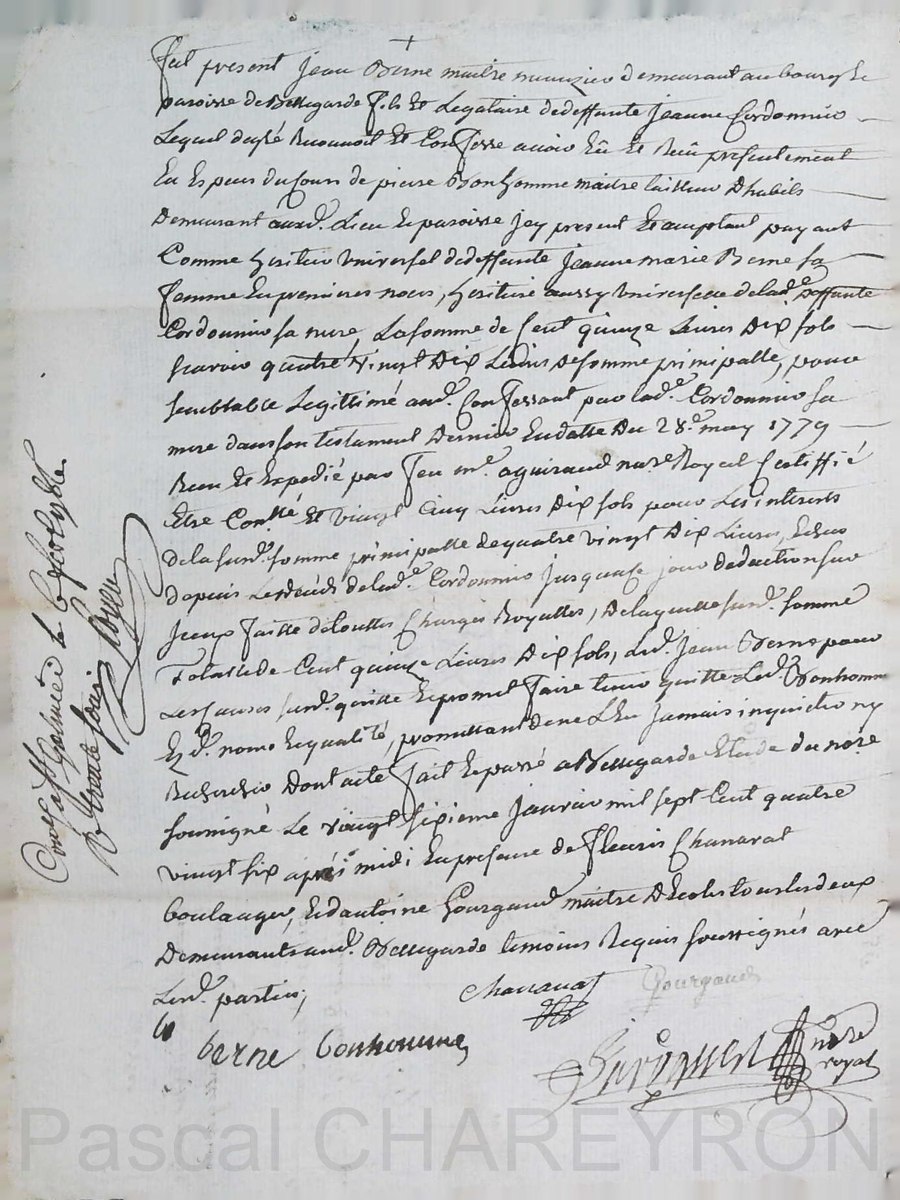 Fut present Jean Berne maitre menuzier demeurant au bourg et
paroisse de Bellegarde fils et Legataire de deffunte Jeanne Cordonnier
Lequel de gré Reconnoit et Confesse avoir Eû et Reçû presentement
En Especes du Cours de pierre Bonhomme maitre tailleur Dhabits
Demeurant aud. Lieu et paroisse icy present et acceptant payant
Comme heritier Universel de deffunte Jeanne marie Berne sa
femme En premieres noces, heritiere aussy Universelle de lad.e Deffunte
Cordonnier sa mere, La somme de Cent quinze Livres Dix sols
scavoir quatre Vingt Dix Livres De somme principalle, pour
semblable Legittime aud. Confessant par lad.e Cordonnier sa
mere dans son testament Dernier En datte Du 28.e may 1779
Recu Et Expedié par feu m.e aguiraud no.re Royal
Etre Con.llé Et vingt Cinq Livres Dix sols pour Les interets
de la susd. somme principalle de quatre vingt Dix Livres, Echus
depuis Le deceds de lad.e Cordonnier jusqua ce jour deduction sur
iceux faitte de touttes Charges Royalles, De laquelle susd. somme
Totalle de Cent quinze Livres Dix sols, Led. Jean Berne pour
Les Causes susd. quitte Et promet faire tenir quitte Led. Bonhomme
Esd. noms Et qualité, promettant de ne L'En Jamais inquieter ny
Rechercher Dont acte fait Et passé a Bellegarde Etude du no.re
soussigné Le vingt sixieme Janvier mil sept Cent quatre
vingt six après midi En presence de fleuris Chanarat
boulanger, Et d'antoine Gourgaud maitre D'Ecole tous les deux
Demeurants aud. Bellegarde temoins Requis soussignés avec
Lesd. parties;
Chanarat Gourgaud
berne bonhomme
no.re
royal
Pascal CHAREYRON